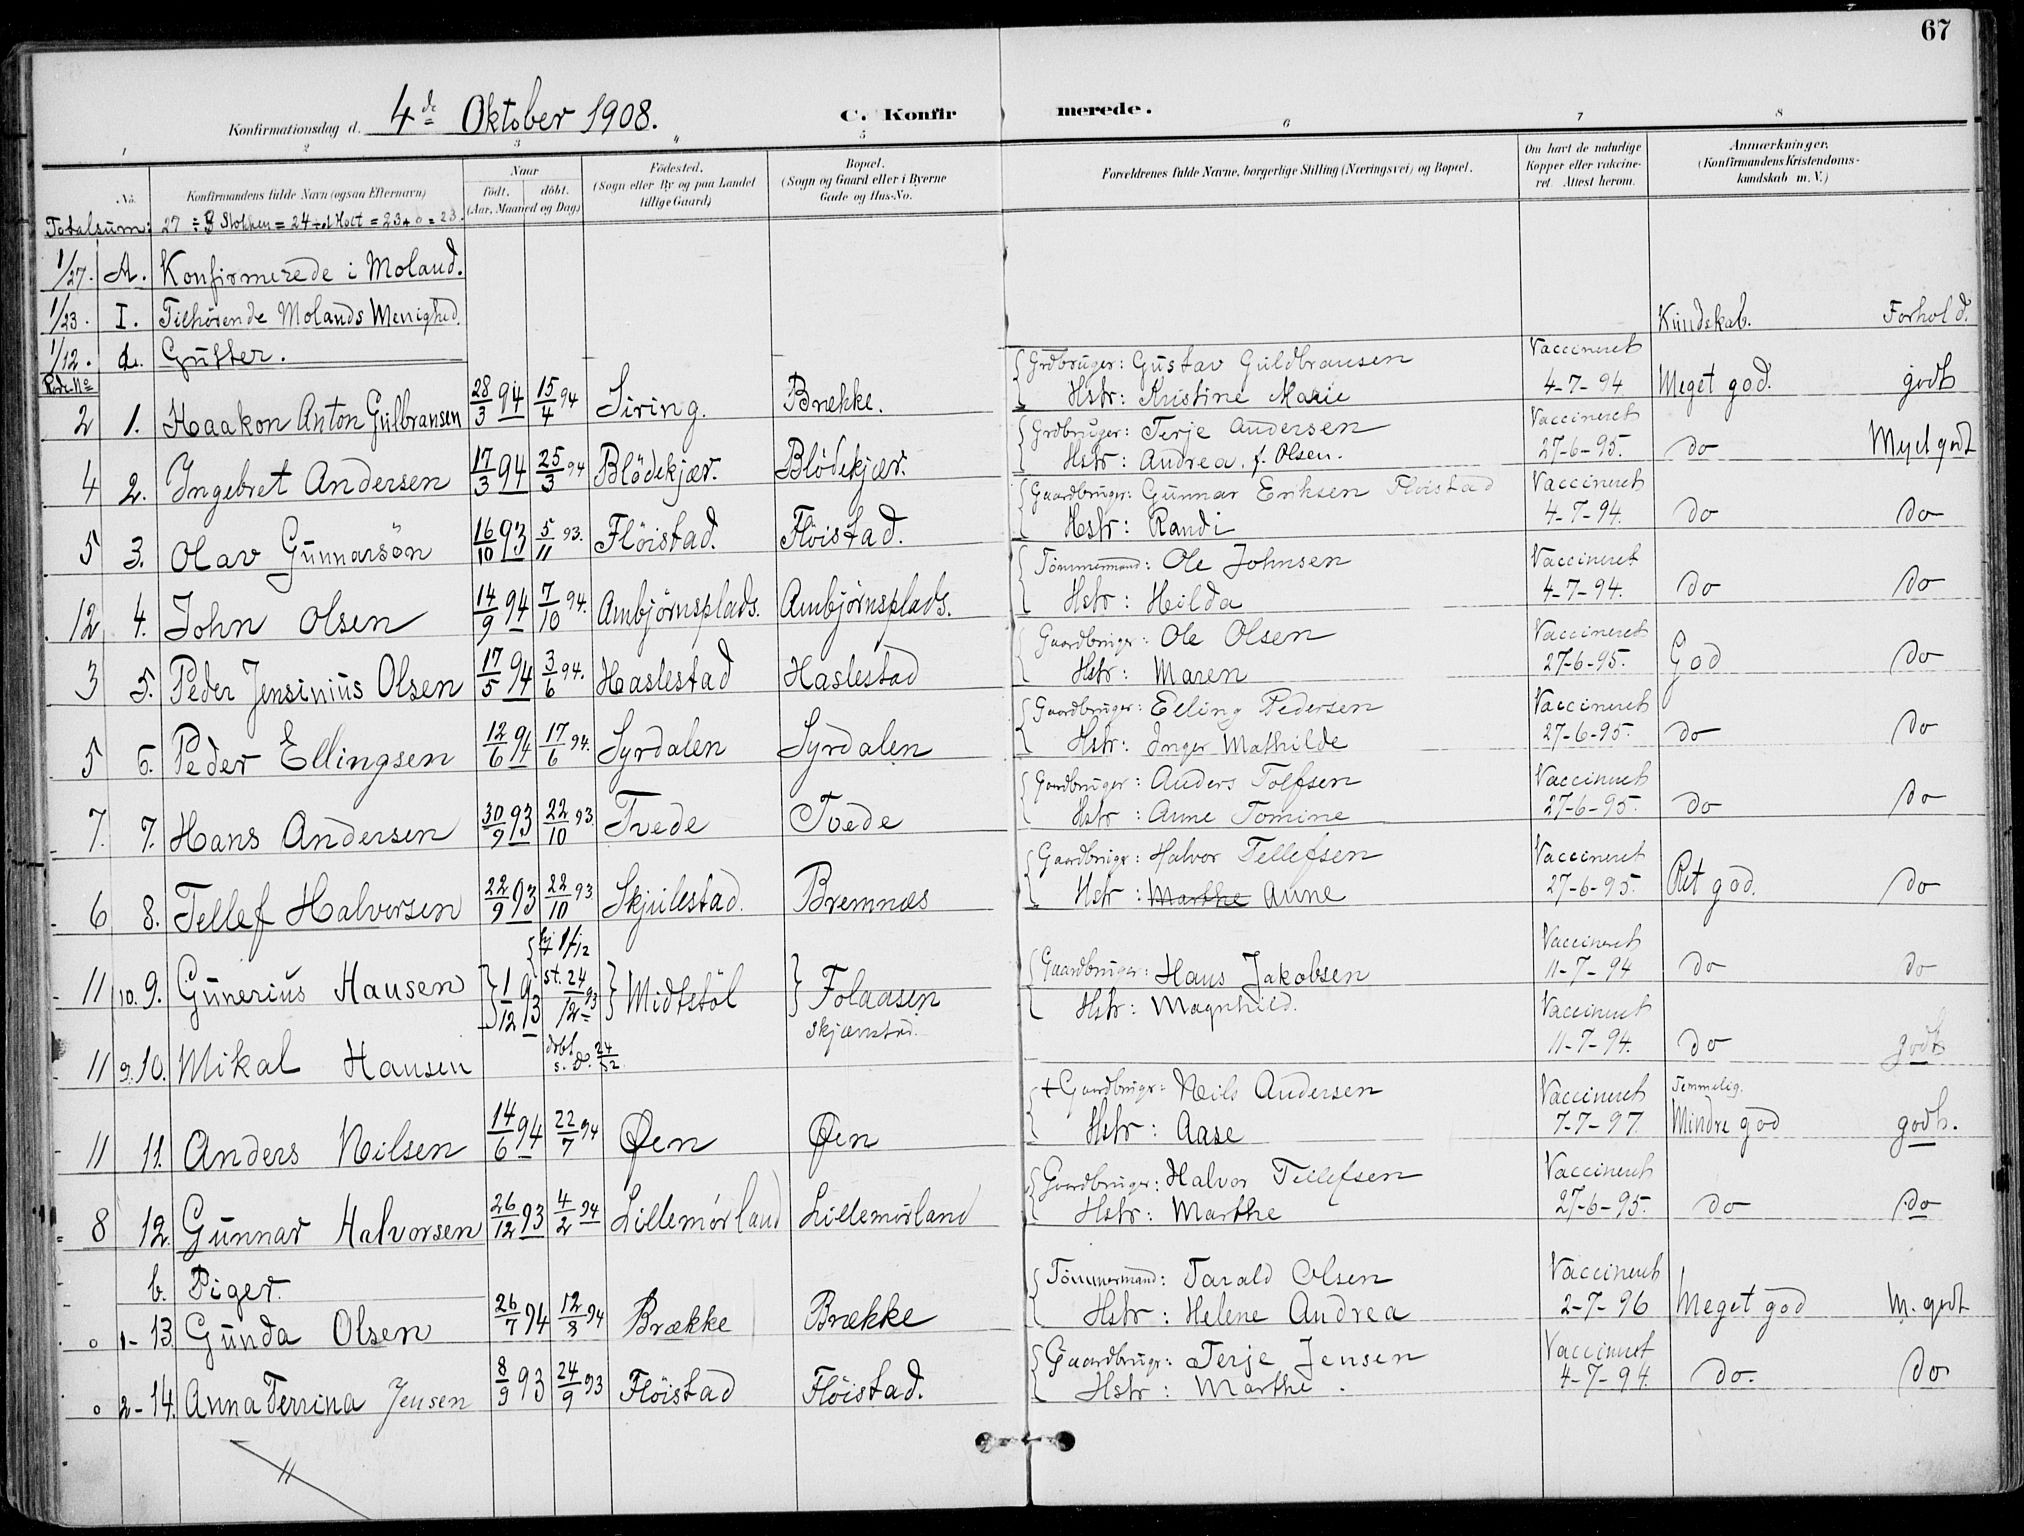 67
Konfirmationsdag d. 4de Oktober 1908.
C. Konfirmerede.
1 2 3 4 5 6 7 8
No. Konfirmandens fulde Navn (ogsaa Efternavn) Naar födt. döbt. (Aar, Maaned og Dag) Födested. (Sogn eller By og paa Landet tillige Gaard) Bopæl. (Sogn og Gaard eller i Byerne Gade og Hus-No. Forældrenes fulde Navne, borgerlige Stilling (Næringsvei) og Bopæl. Om havt de naturlige Kopper eller vakcineret. Attest herom. Anmærkninger. (Konfirmandens Kristendomskundskab m. V.)
Totalsum: 27 ÷ 3 Stokken = 24 ÷ 1 Holt = 23 + 0 = 23.
1/27. A. Konfirmerede i Moland.
1/23. I. Tilhörende Molands Menighed.
1/12. a. Gutter. Kundskab. Forhold.
Rode No
2 1. Haakon Anton Gulbransen 28/3 94 15/4 94 Siring. Brække. Grdbruger: Gustav Guldbransen Vaccineret
Hstr: Kristine Marie 4-7-94 Meget god. godt
4 2. Ingebret Andersen 17/3 94 25/3 94 Blödekjær. Blödekjær. Grdbruger: Terje Andersen Vaccineret
Hstr: Andrea. f. Olsen. 27-6-95. do Myet godt
5 3. Olav Gunnarsön 16/10 93 5/11 93. Flöistad. Flöistad. Gaardbruger: Gunnar Eriksen Flöistad Vaccineret
Hstr: Randi 4-7-94. do do
12 4. John Olsen 14/9 94 7/10 94. Ambjörnsplads. Ambjörnsplads. Tömmermand: Ole Johnsen Vaccineret
Hstr: Hilda 4-7-94. do do
3 5. Peder Jensinius Olsen 17/5 94 3/6 94. Haslestad Haslestad Gaardbruger: Ole Olsen Vaccineret
Hstr: Maren 27-6-95. God do
5 6. Peder Ellingsen 12/6 94 17/6 94. Syrdalen Syrdalen Gaardbruger: Elling Pedersen Vaccineret
Hstr: Inger Mathilde 27-6-95. do do
7. 7. Hans Andersen 30/9 93 22/10 93. Tvede Tvede Gaardbruger: Anders Tolfsen Vaccineret
Hstr: Anne Tomine 27-6-95. do do
6 8. Tellef Halvorsen 22/9 93 22/10 93 Skjulestad. Bremnæs Gaardbruger: Halvor Tellefsen Vaccineret
Hstr: Marthe Anne 27-6-95. Ret god. do
11 10. 9. Gunerius Hansen 1/12 93 hj 1/12 st. 24/12 93 Midtstöl Folaasen Gaardbruger: Hans Jakobsen Vaccineret 11-7-94 do do
Skjænstad. Hstr: Magnhild. Vaccineret
11 9. 10. Mikal Hansen döbt s. d. 24/12 11-7-94. do godt
11 11. Anders Nilsen 14/6 94 22/7 94 Öen Öen + Gaardbruger: Nils Andersen Vaccineret Temmelig.
Hstr: Aase 7-7-97. Mindre god godt.
8 12. Gunnar Halvorsen 26/12 93 4/2 94 Lillemörland Lillemörland Gaardbruger: Halvor Tellefsen Vaccineret
Hstr: Marthe 27-6-95. do do
b. Piger.
0 1- 13. Gunda Olsen 26/7 94 12/8 94 Brække Brække Tömmermand: Tarald Olsen Vaccineret
Hstr: Helene Andrea 2-7-96 Meget god M. godt
0 2- 14. Anna Terrina Jensen 8/9 93 24/9 93 Flöistad Flöistad. Gaardbruger: Terje Jensen Vaccineret
Hstr: Marthe. 4-7-94. do. do